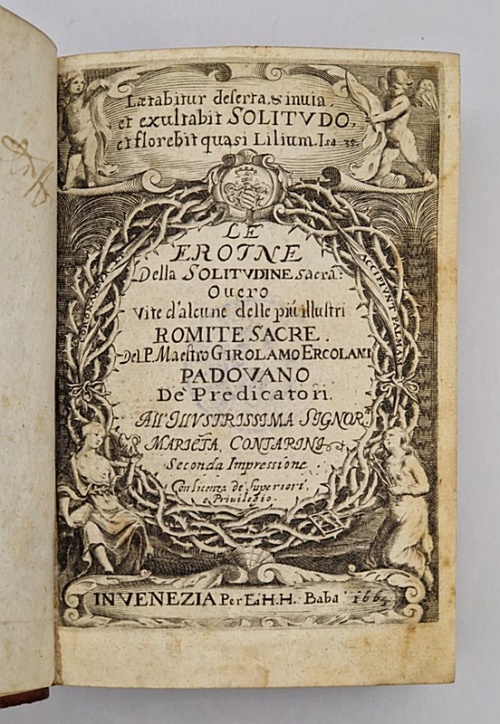 Lætabitur deserta, & inuia,
et exultabit SOLITVDO,
et florebit quasi Lilium. Isa 35.
LE
EROINE
Della SOLITVDINE sacra:
Ouero
Vite d'alcune delle più illustri
ROMITE SACRE.
Del P. Maestro GIROLAMO ERCOLANI
PADOVANO
De' Predicatori.
All' ILLVSTRISSIMA SIGNOR.ᵃ
MARIETA, CONTARINI
Seconda Impressione
Con licenza de' Superiori,
e Priuilegio.
ACCIPIVNT PALMAM
IN VENEZIA Per Li H.H. Baba